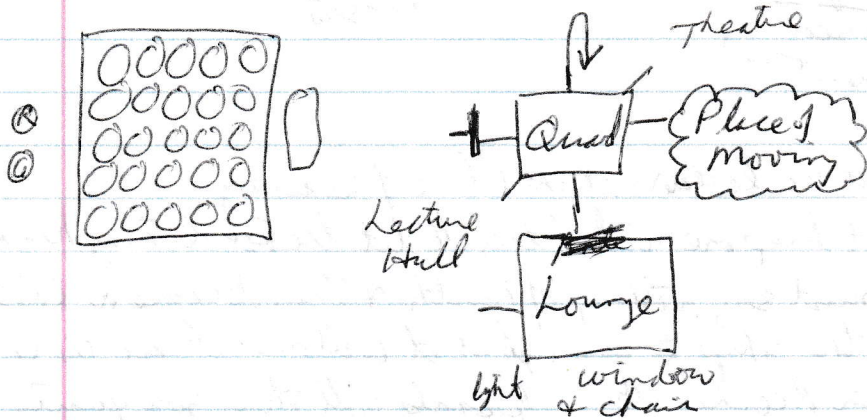 Theatre
R
G
Quad
Place of
Moving
Lecture
Hall
Lounge
light window
& chair